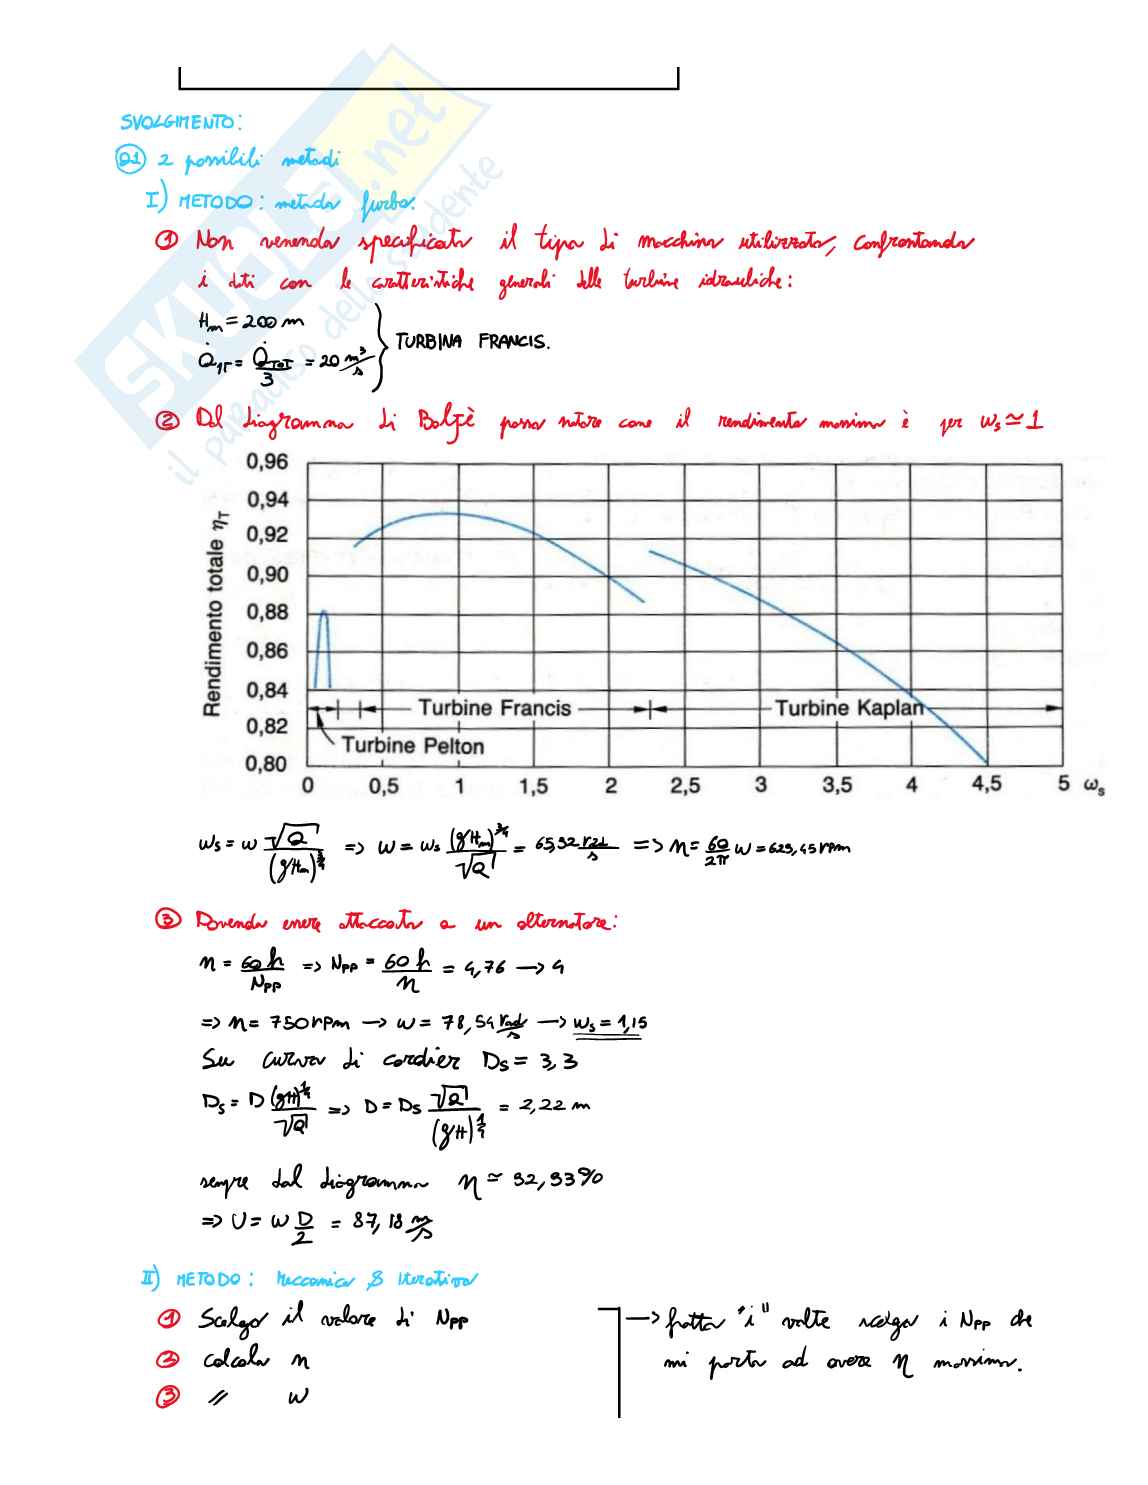 SVOLGIMENTO:
Q1 2 possibili metodi
I) METODO: metodo furbo:
1 Non venendo specificato il tipo di macchina utilizzata, confrontando
i dati con le caratteristiche generali delle turbine idrauliche:
Hm = 200 m
Q̇1T = Q̇TOT/3 = 20 m³/s } TURBINA FRANCIS.
2 Dal diagramma di Baljè posso notare come il rendimento massimo è per ωs ≃ 1
Rendimento totale ηT
0,96
0,94
0,92
0,90
0,88
0,86
0,84
0,82
0,80
Turbine Francis
Turbine Kaplan
Turbine Pelton
0 0,5 1 1,5 2 2,5 3 3,5 4 4,5 5 ωs
ωs = ω √Q/(gHm)^3/4 => ω = ωs (gHm)^3/4/√Q = 65,92 rad/s => n = 60/2π ω = 629,45 rpm
3 Dovendo essere attaccata a un alternatore:
n = 60 f/Npp => Npp = 60 f/n = 4,76 → 4
=> n = 750 rpm → ω = 78,54 rad/s → ωs = 1,15
Su curva di cordier Ds = 3,3
Ds = D (gH)^1/4/√Q => D = Ds √Q/(gH)^1/4 = 2,22 m
sempre dal diagramma η ≃ 92,93%
=> U = ω D/2 = 87,18 m/s
II) METODO: Meccanico & Iterativo
1 Scelgo il valore di Npp
2 calcolo n
3 // ω
→ fatta "i" volte scelgo i Npp che
mi porta ad avere η massimo.
SKUOLA.net
il paradiso dello studente